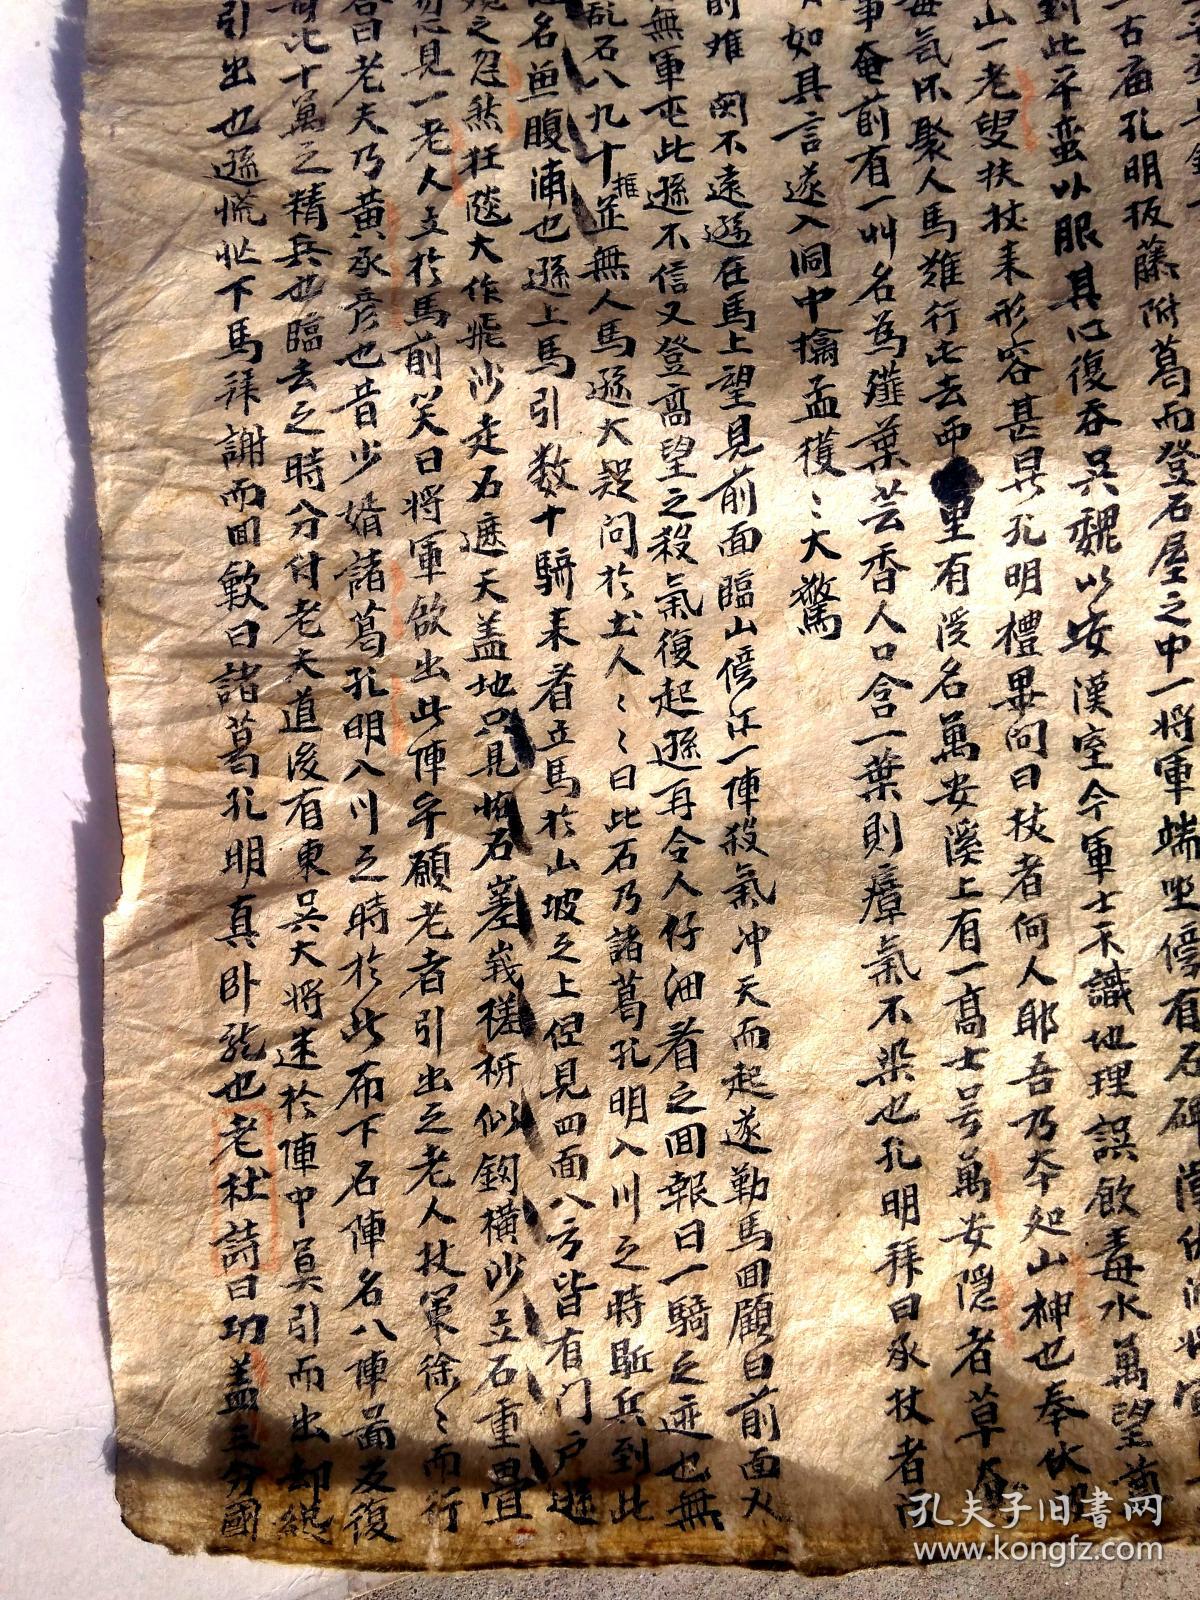 一古庙孔明扳藤附葛而登石屋之中一将軍端坐傍有石碑
到此平蛮以服其心復吞吴魏以安漢室今軍士不識地理誤飲毒水萬望
山一老叟扶杖来形容甚異孔明禮畢问曰杖者何人耶吾乃本処山神也奉伏
毒氣不聚人馬難行此去西里有溪名萬安溪上有一高士号萬安隠者草
事奄前有一草名為薤葉芸香人口含一葉則瘴氣不染也孔明拜曰承杖者
如其言遂入洞中擒孟獲〻大驚
前难関不遠遜在馬上望見前面臨山傍江一陣殺氣冲天而起遂勒馬回顧曰前面
無軍屯此遜不信又登高望之殺氣復起遜再令人仔细看之回報曰一騎之迹也無
乱石八九十堆並無人馬遜大疑问於土人〻曰此石乃諸葛孔明入川之時駈兵到此
名魚腹浦也遜上馬引数十騎来看立馬於山坡之上但見四面八方皆有门户遜
忽然狂颷大作飛沙走石遮天盖地只見怪石嵳峩槎枒似釼橫沙立石重畳
見一老人立於馬前笑曰将軍欲出此陣乎願老者引出之老人扙策徐〻而行
曰老夫乃黄承彦也昔少婿諸葛孔明入川之時於此布下石陣名八陣啚反復
比十萬之精兵也臨去之時分付老夫道後有東吴大将迷於陣中莫引而出却縂
引出也遜慌忙下馬拜謝而回歎曰諸葛孔明真卧龍也老杜詩曰功盖三分國
孔夫子旧书网
www.kongfz.com